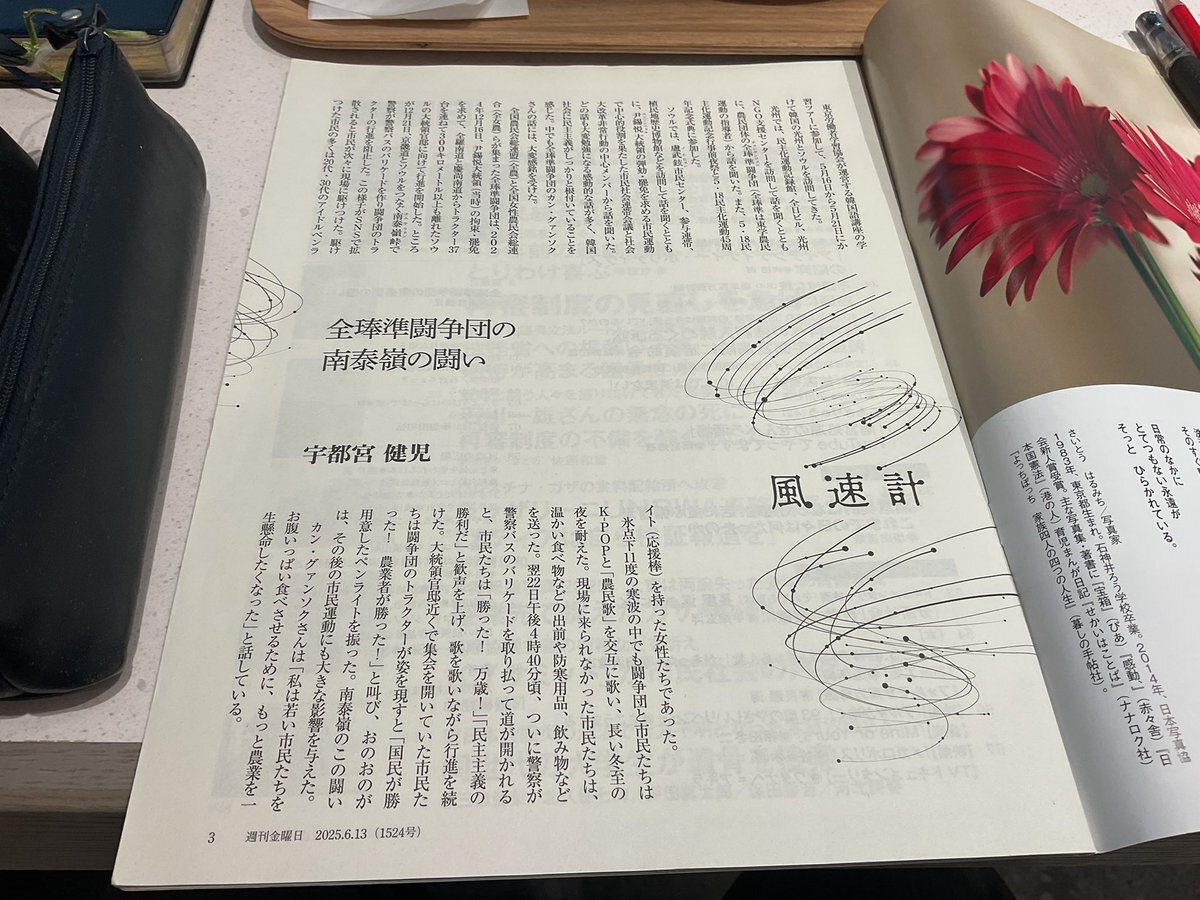 風速計
全琫準闘争団の
南泰嶺の闘い
宇都宮 健児
東京労働者学習協会が運営する韓国語講座の学
習ツアーに参加して、5月16日から5月21日にか
けて韓国の光州とソウルを訪問してきた。
光州では、民主化運動記録館、全日ビル、光州
NGO支援センターを訪問して話を聞くととも
に、農民団体の全琫準闘争団(全琫準は東学農民
運動の指導者)から話を聞いた。また、5・18民
主化運動記念行事前夜祭と5・18民主化運動45周
年記念式典に参加した。
ソウルでは、盧武鉉市民センター、参与連帯、
植民地歴史博物館などを訪問して話を聞くととも
に、尹錫悦大統領の弾劾・罷免を求める市民運動
で中心的役割を果たした市民社会連帯会議と社会
大改革非常行動の中心メンバーから話を聞いた。
どの話も大変勉強になる感動的な話が多く、韓国
社会に民主主義がしっかりと根付いていることを
感じた。中でも全琫準闘争団のカン・グァンソク
さんの話には、大変感銘を受けた。
全国農民会総連盟(全農)と全国女性農民会総連
合(全女農)とが集まった全琫準闘争団は、202
4年12月16日、尹錫悦大統領(当時)の拘束・罷免
を求めて、全羅南道と慶尚南道からトラクター37
台を連ねて300キロメートル以上も離れたソウ
ルの大統領官邸に向けて行進を開始した。ところ
が12月21日、京畿道とソウルをつなぐ南泰嶺峠で
警察が警察バスのバリケードを作り闘争団のトラ
クターの行進を阻止した。この様子がSNSで拡
散されると市民が次々に現場に駆けつけた。駆け
つけた市民の多くは20代・30代のアイドルペンラ
イト(応援棒)を持った女性たちであった。
氷点下11度の寒波の中でも闘争団と市民たちは
K-POPと「農民歌」を交互に歌い、長い冬至の
夜を耐えた。現場に来られなかった市民たちは、
温かい食べ物などの出前や防寒用品、飲み物など
を送った。翌22日午後4時40分頃、ついに警察が
警察バスのバリケードを取り払って道が開かれる
と、市民たちは「勝った! 万歳!」「民主主義の
勝利だ」と歓声を上げ、歌を歌いながら行進を続
けた。大統領官邸近くで集会を開いていた市民た
ちは闘争団のトラクターが姿を現すと「国民が勝
った! 農業者が勝った!」と叫び、おのおのが
用意したペンライトを振った。南泰嶺のこの闘い
は、その後の市民運動にも大きな影響を与えた。
カン・グァンソクさんは「私は若い市民たちを
お腹いっぱい食べさせるために、もっと農業を一
生懸命したくなった」と話している。
3 週刊金曜日 2025.6.13(1524号)
日常のなかに
とてつもない永遠が
そっと ひらかれている。
さいとう はるみち/写真家
1983年、東京都生まれ。石神井ろう学校卒業。2014年、日本写真協
会新人賞受賞。主な写真集・著書に『宝箱』(ぴあ)『感動』(赤々舎)『日
本国憲法』(港の人)育児まんが日記『せかいはことば』(ナナロク社)
『よっちぼっち 家族四人の四つの人生』(暮しの手帖社)。